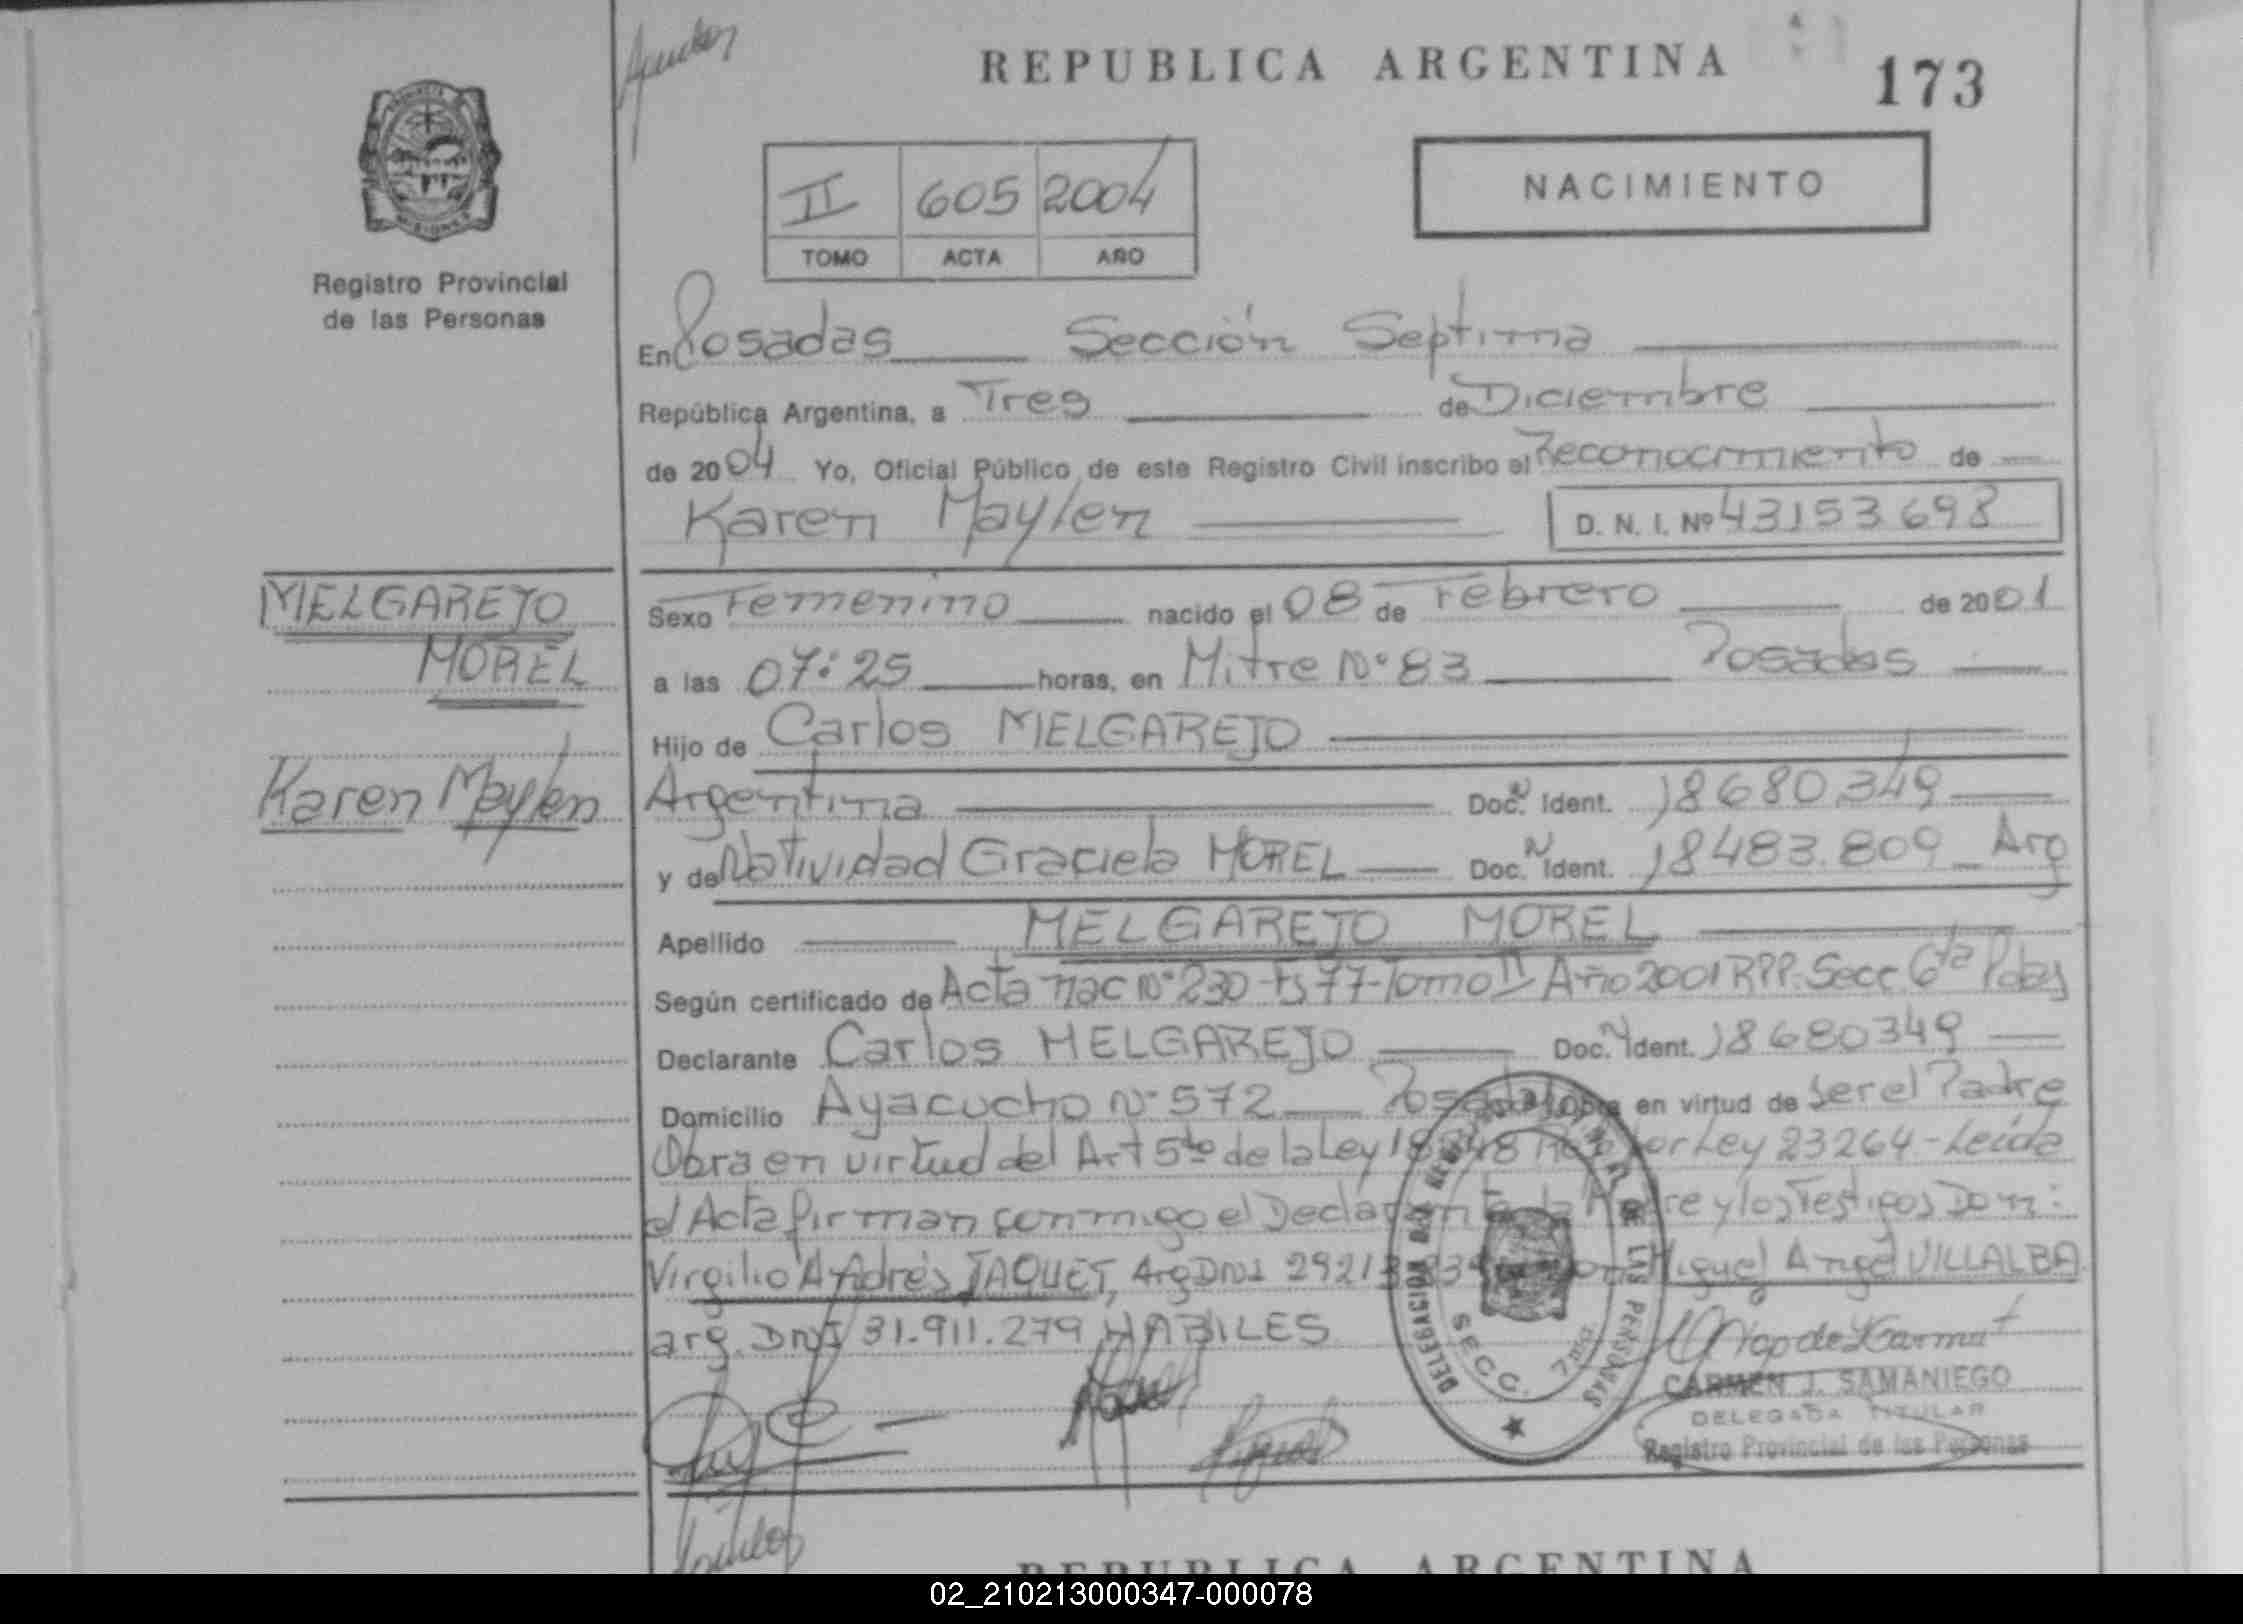 REPUBLICA ARGENTINA
173
II 605 2004
TOMO ACTA AÑO
NACIMIENTO
Registro Provincial
de las Personas
En Posadas Sección Septima
República Argentina, a Tres de Diciembre
de 2004 Yo, Oficial Público de este Registro Civil inscribo el Reconocimiento de
Karen Maylen D. N. I. Nº 43153698
MELGAREJO
MOREL
Karen Maylen
Sexo Femenino nacido el 08 de Febrero de 2001
a las 07:25 horas, en Mitre Nº 83 Posadas
Hijo de Carlos MELGAREJO
Argentina Doc. Ident. 18680349
y de Natividad Graciela MOREL Doc. Ident. 18483.809 Arg
Apellido MELGAREJO MOREL
Según certificado de Acta nac Nº 230-Fs 77-Tomo II Año 2001 RPP. Secc 6ta Pdas
Declarante Carlos MELGAREJO Doc. Ident. 18680349
Domicilio Ayacucho Nº 572 Posadas Obra en virtud de ser el Padre
Obra en virtud del Art 5to de la Ley 18248 por Ley 23264-Leida
el Acta firman conmigo el Declarante la Madre y los Testigos Don:
Virgilio Andrés JAQUET, Arg DNI Miguel Angel VILLALBA
arg. DNI 31.911.279 HABILES
DELEGACION DEL REGISTRO PROVINCIAL DE LAS PERSONAS
SECC. 7ma
CARMEN J. SAMANIEGO
DELEGADA TITULAR
Registro Provincial de las Personas
REPUBLICA ARGENTINA
02_210213000347-000078